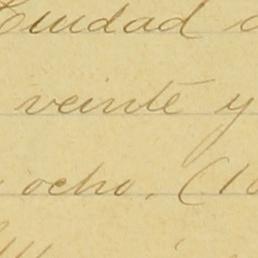 Ciudad
veinte y
ocho. (10